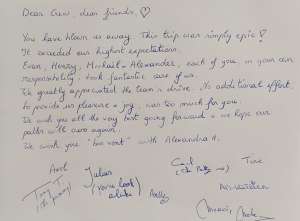 Dear Crew, dear friends, ♡
You have blown us away. This trip was simply epic!
It exceeded our highest expectations.
Evan, Henry, Michael-Alexander, each of you, in your own
responsibility, took fantastic care of us.
We greatly appreciated the team's drive. No additional effort
to provide us pleasure + joy, was too much for you.
We wish you all the very best going forward & we hope our
paths will cross again.
We wish you "bon vent" with Alexandra II.
Axel
Julius
(your look
alike)
Tine